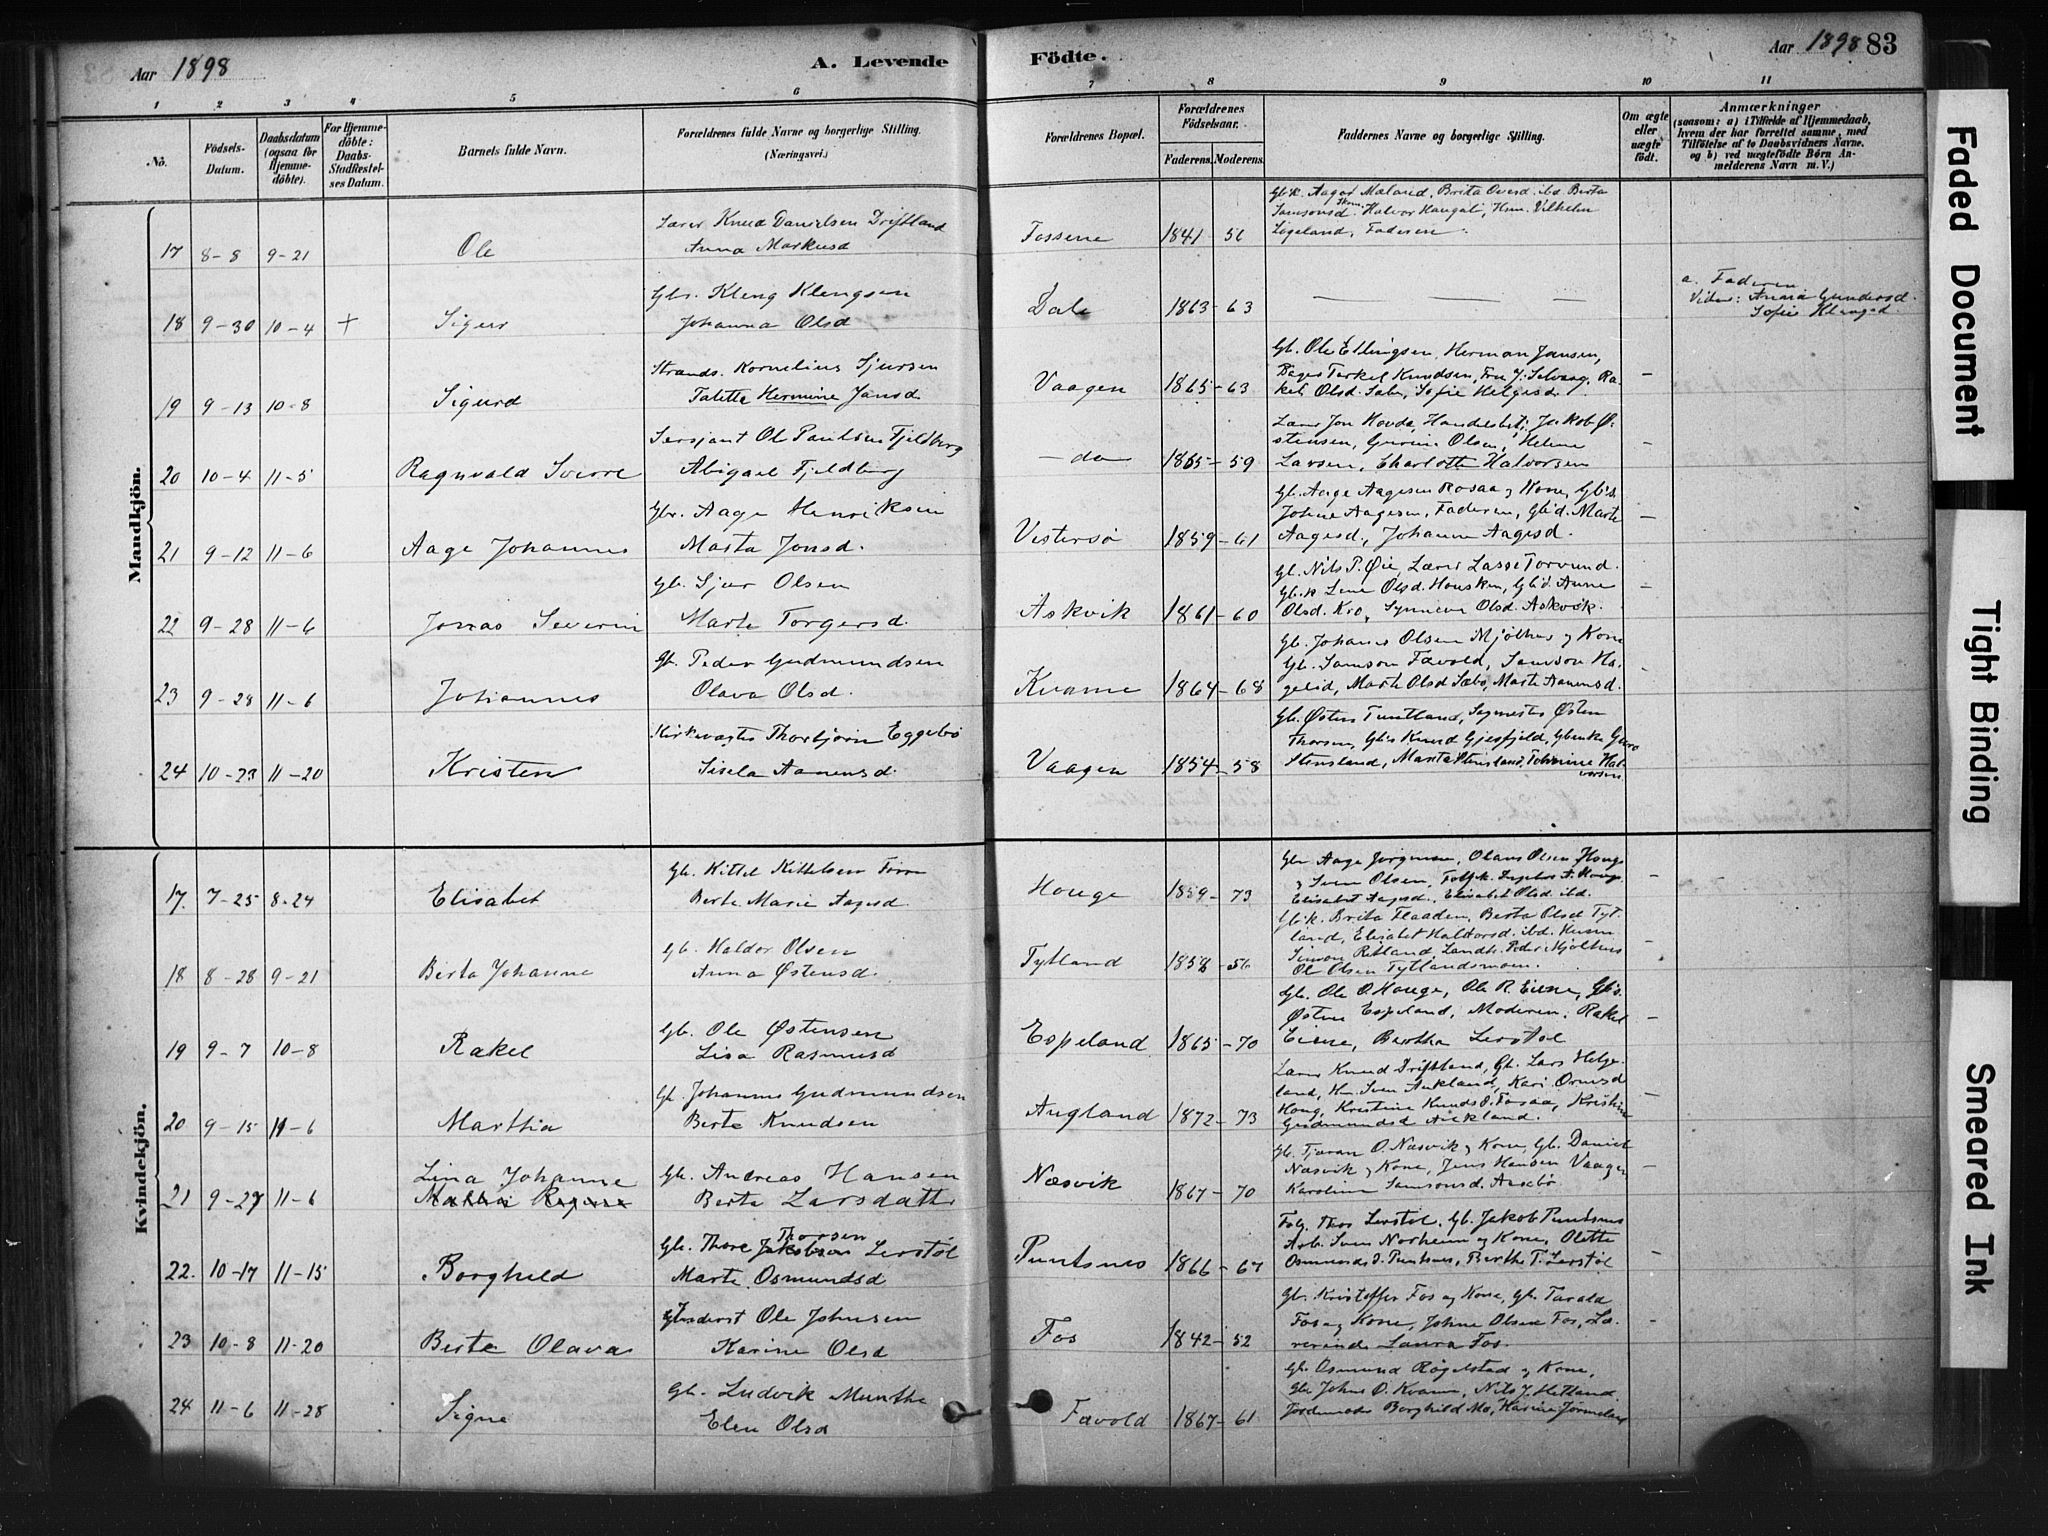 Aar 1898
A. Levende
Födte.
Aar 1898 83
1 2 3 4 5 6 7 8 9 10 11
No.
Födsels-Datum.
Daabsdatum (ogsaa for Hjemme-döbte).
For Hjemme-döbte: Daabs-Stadfæstel-ses Datum.
Barnets fulde Navn.
Forældrenes fulde Navne og borgerlige Stilling.
(Næringsvei.)
Forældrenes Bopæl.
Forældrenes Födselsaar.
Faderens. Moderens.
Faddernes Navne og borgerlige Stilling.
Om ægte eller uægte födt.
Anmærkninger
(saasom: a) i Tilfælde af Hjemmedaab, hvem der har forrettet samme, med Tilföielse af to Daabsvidners Navne. og b) ved uægtefödte Börn An-melderens Navn m. V.)
Mandkjön.
17 8-8 9-21 Ole
Lærer Knud Danielsen Driftland
Anna Markusd
Fossene 1841-56
Gbk. Aagot Mæland, Brita Oversd. ibd. Berta
Samsonsd. Halvor Haugali, Hsm. Vilhelm
Lageland, Faderen
18 9-30 10-4 + Sigur
Gbr. Kleng Klengsen
Johanna Olsd
Dale 1863-63
a, Faderen
Vidner: Anna Gundersd.
Sofie Klengsd.
19 9-13 10-8 Sigurd
Strands. Kornelius Sjursen
Taletta Hermine Jansd
Vaagen 1865-63 –
Gb. Ole Ellingsen, Herman Jansen,
Bager Torkel Knudsen, Fru J. Selvaag, Ra-
kel Olsd. Sabø, Sofie Helgesd
20 10-4 11-5 Ragnvald Sverre
Sersjant Ole Paulsen Fjeldberg
Abigael Fjeldberg
– do 1865-59
Lærer Jon Hovda, Handelsbet. Jakob Ø-
stensen, Gurine Olsen, Helene
Larsen, Charlotte Halvorsen
21 9-12 11-6 Aage Johannes
Gbr. Aage Henriksen
Marta Jonsd.
Vestersø 1859-61 –
Gb. Aage Aagesen Rosaa og Kone, Gb's.
Johne Aagesen, Faderen, Gb'd. Marte
Aagesd., Johanne Aagesd.
22 9-28 11-6 Jonas Severin
Gb. Sjur Olsen
Marte Torgersd.
Askvik 1861-60
Gb. Nils P. Øie, Lærer Lasse Torvund.
Gb.k Lene Olsd. Housken, Gb'd. Anne
Olsd. Kro, Synneva Olsd. Askvik.
23 9-28 11-6 Johannes
Gb. Peder Gudmundsen
Olava Olsd.
Kvame 1864-68 –
Gb. Johanes Olsen Mjølhus og Kone
Gb. Samson Favold, Samson Ha-
gelid, Marte Olsd Sæbø, Marte Aanensd.
24 10-23 11-20 Kristen
Kirkevagter Thorbjørn Eggebø
Sisela Aanensd.
Vaagen 1854-58
Gb. Østen Tuntland, Sagmester Østen
Thorsen, Gb's Knud Gjesfjeld, Gbenke Guro
Stensland, Marta Stensland, Tobinine Hal-
vorsen
Kvindekjön.
17. 7-25 8-24 Elisabet
Gb. Kittel Kittelsen Førre
Berte Marie Aagesd.
Houge 1859-73 –
Gbr Aage Jørgensen, Olaus Olsen Houge
og Sven Olsen,
Elisabet Aagesd., Elisabet Olsd. ibd.
18 8-28 9-21 Berta Johanne
Gb. Haldor Olsen
Anna Østensd.
Tytland 1858-56 –
Gb'k. Brita Flaaden, Berta Olsd Tyt-
land, Elisabet Haldorsd. ibd. Husm
Simon Retland, Landh. Peder Mjølhus
Ole Olsen Tytlandsmoen.
19 9-7 10-8 Rakel
Gb. Ole Østensen
Lisa Rasmusd
Espeland 1865-70 –
Gb. Ole O. Houge, Ole R. Eiene, Gb's.
Østen Espeland, Moderen, Rakel
Eiene, Bertha Lerstøl
20 9-15 11-6 Marthia
Gb. Johannes Gudmundsen
Berte Knudsen
Augland 1872-73 –
Lærer Knud Driftland, Gb. Lars Helge-
land, Hm. Sven Aukland, Kari Ormsd
Houg, Kristine Knudsd. Fosaa, Kristine
Gudmundsd Aukland.
21 9-27 11-6 Lina Johanne
Gb. Andreas Hansen
Berta Larsdatter
Næsvik 1867-70 –
Gb. Tjøran O. Næsvik og Kone, Gb. Daniel
Næsvik og Kone, Jens Hansen Vaagen
Karoline Samsonsd. Aasebø
22. 10-17 11-15 Borghild
Gb. Thore Thorsen Lerstøl
Marte Osmundsd
Puntsnes 1866-67 –
Folg. Thor Lerstøl, Gb. Jakob Puntsnes
Arb. Sven Norheim og Kone, Olette
Osmundsd. Puntsnes, Berthe T. Lerstøl
23 10-8 11-20 Berte Olava
Ole Johnsen
Karine Olsd
Fos 1842-52 –
Gb. Kristoffer Fos og Kone, Gb. Tarald
Fos og Kone, Johne Olsen Fos, Læ-
rerinde Laura Fos
24 11-6 11-28 Signe
Gb. Ludvik Munthe
Elen Olsd
Favold 1867-61
Gb. Osmund Røgelstad og Kone,
Gb. Johns O. Kvame, Nils J. Hetland
Jordemoder Borghild Mo, Karine Jørmeland
Faded Document
Tight Binding
Smeared Ink